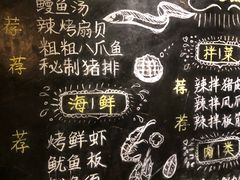 鳗鱼汤
荐 辣烤扇贝
粗粗八爪鱼
荐 秘制猪排
海鲜
荐 烤鲜虾
鱿鱼板
拌菜
荐 辣拌猪
辣拌瓜
辣拌板
肉类